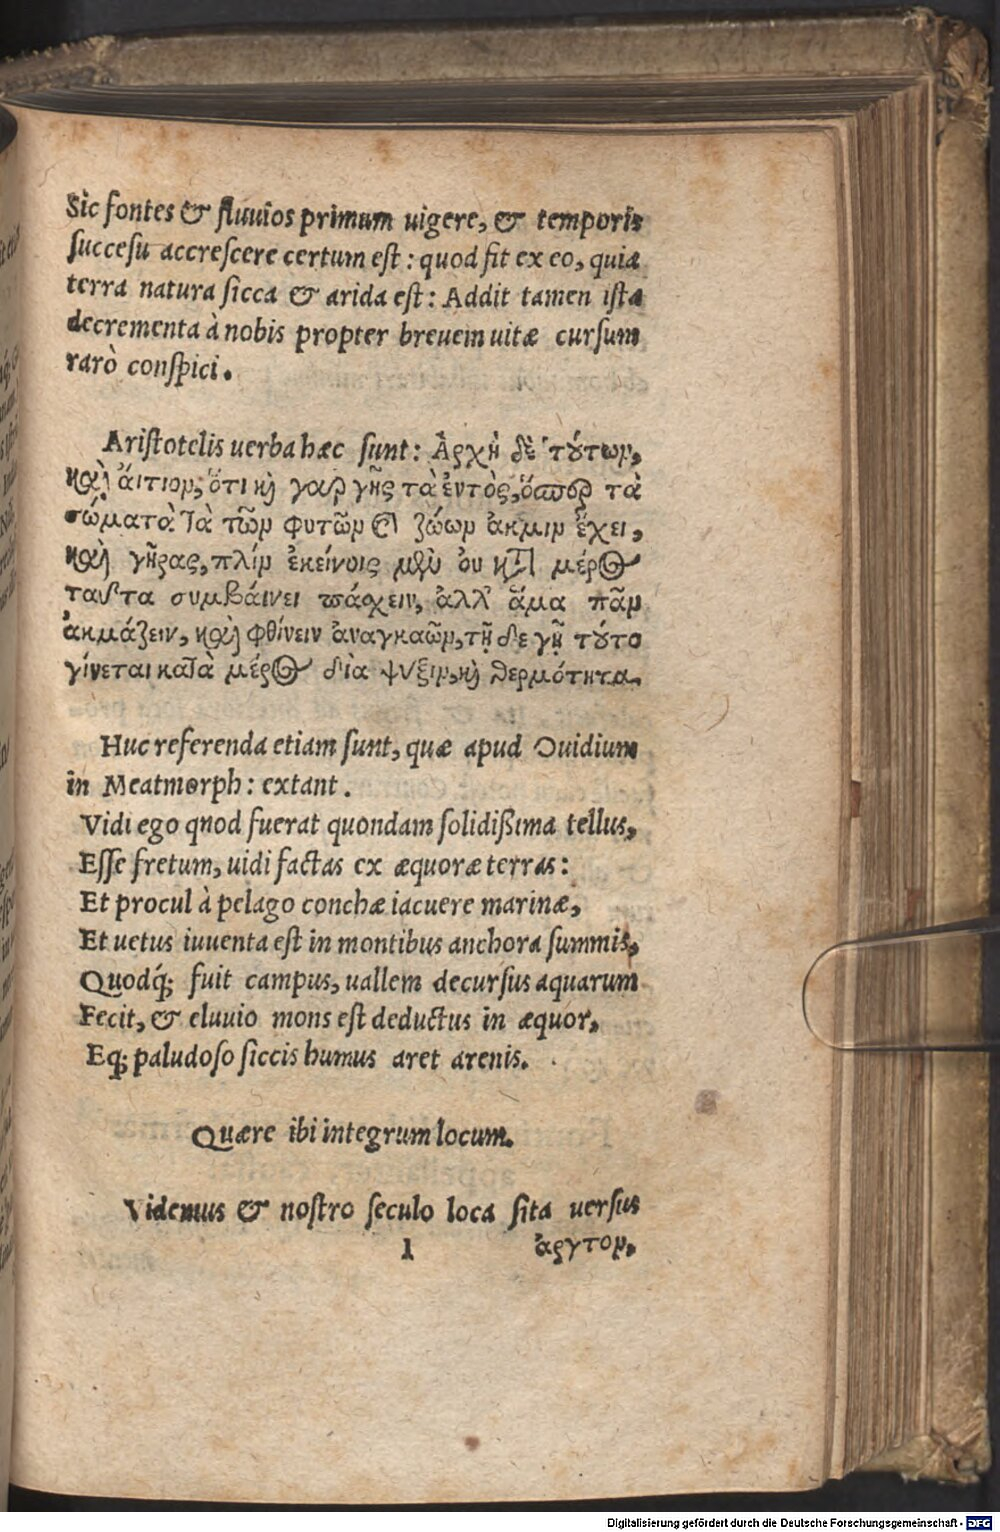 Sic fontes & fluuios primum uigere, & temporis
succesu accrescere certum est: quod fit ex eo, quia
terra natura sicca & arida est: Addit tamen ista
decrementa à nobis propter breuem uitæ cursum
rarò conspici.
Aristotelis uerba hæc sunt: Ἀρχὴ δὲ τούτωμ,
καὶ ἄιτιομ, ὅτι καὶ γαρ γῆς τὰ ἐντὸς, ὅσπερ τὰ
σώματα τὰ τῶμ φυτῶμ καὶ ζώωμ ἀκμιμ ἔχει,
καὶ γῆρας, πλίμ ἐκείνοις μὲμ ὀυ κατὰ μέρος
ταῦτα συμβάινει πάχειν, ἀλλ' ἅμα πᾶμ
ἀκμάζειν, καὶ φθίνειν ἀναγκαῶμ, τῇ δε γῇ τούτο
γίνεται κατὰ μέρος διὰ ψυξιμ, καὶ θερμότητα.
Huc referenda etiam sunt, quæ apud Ouidium
in Meatmorph: extant.
Vidi ego qnod fuerat quondam solidißima tellus,
Esse fretum, uidi factas ex æquoræ terras:
Et procul à pelago conchæ iacuere marinæ,
Et uetus iuuenta est in montibus anchora summis,
Quodq́; fuit campus, uallem decursus aquarum
Fecit, & eluuio mons est deductus in æquor,
Eq; paludoso siccis humus aret arenis.
Quære ibi integrum locum.
Videmus & nostro seculo loca sita uersus
l ἀρχτομ,
Digitalisierung gefördert durch die Deutsche Forschungsgemeinschaft - DFG